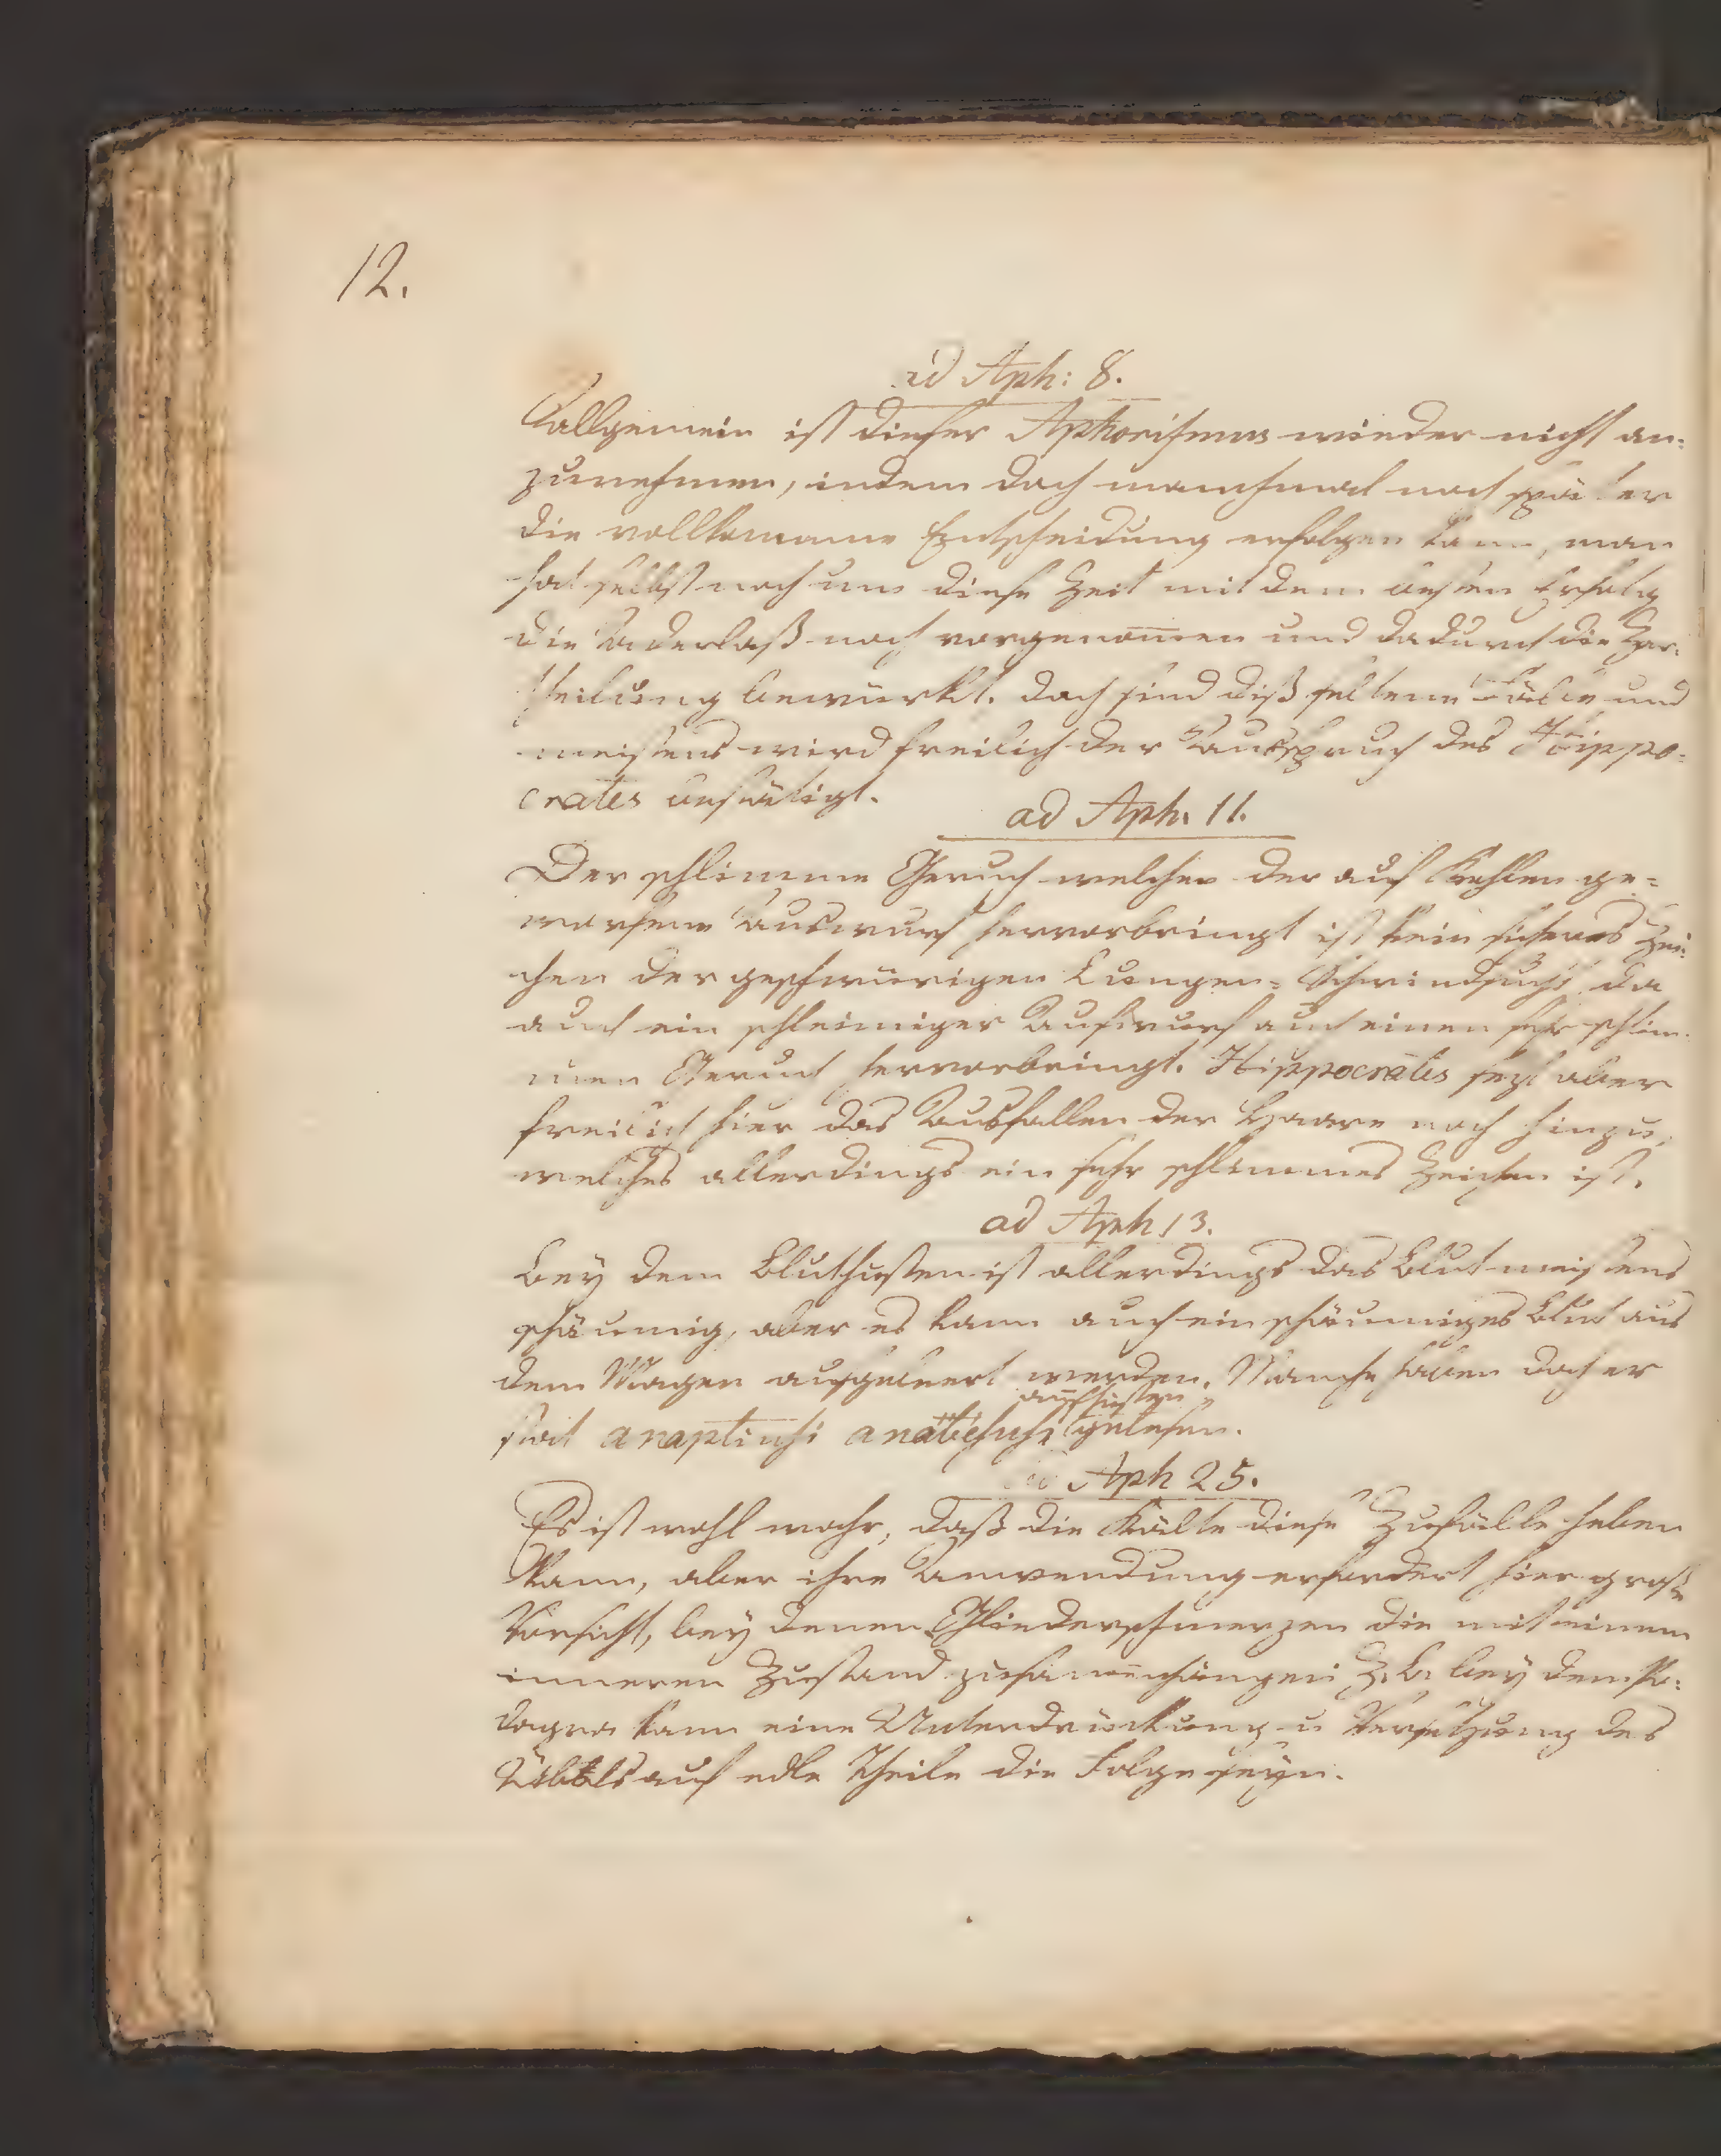 12.
ad Aph: 8.
Allgemein ist dieser Aphorismus wieder nicht an-
zunehmen, indem doch manchmal noch später
die vollkomme Entscheidung erfolgen kann, man
hat selbst noch um diese Zeit mit dem besten Erfolg
die Aderlaß noch vorgenom̄en und dadurch die Zer-
theilung bewürkt. doch sind diß seltene Fälle und
meistens wird freilich der Ausspruch des Hippo-
crates bestätigt.
ad Aph. 11.
Der schlimme Geruch welchen der auf Kohlen ge-
worfene Auswurf hervorbringt ist kein sicheres Zei-
chen der geschwürigen Lungen-Schwindsucht, da
auch ein schleimiger Auswurf auch einen sehr schlim-
men Geruch hervorbringt. Hippocrates sezt aber
freilich hier das Ausfallen der Haare noch hinzu,
welches allerdings ein sehr schlimmes Zeichen ist.
ad Aph 13.
Bey dem Bluthusten ist allerdings das Blut meistens
schäumig, aber es kann auch ein schäumiges Blut aus
dem Magen ausgeleert werden. Manche haben daher
aufhusten
statt anaptiusi gelesen.
Aph 25.
Es ist wohl wahr, daß die Kälte diese Zufälle heben
kann, aber ihre Anwendung erfordert hier große
Vorsicht, bey denen Gliederschmerzen die mit einem
inneren Zustand zusam̄enhängen z. B. bey dem Po-
dagra kann eine Unterdrückung u Versetzung des
Übels auf edle Theile die Folge seyn.